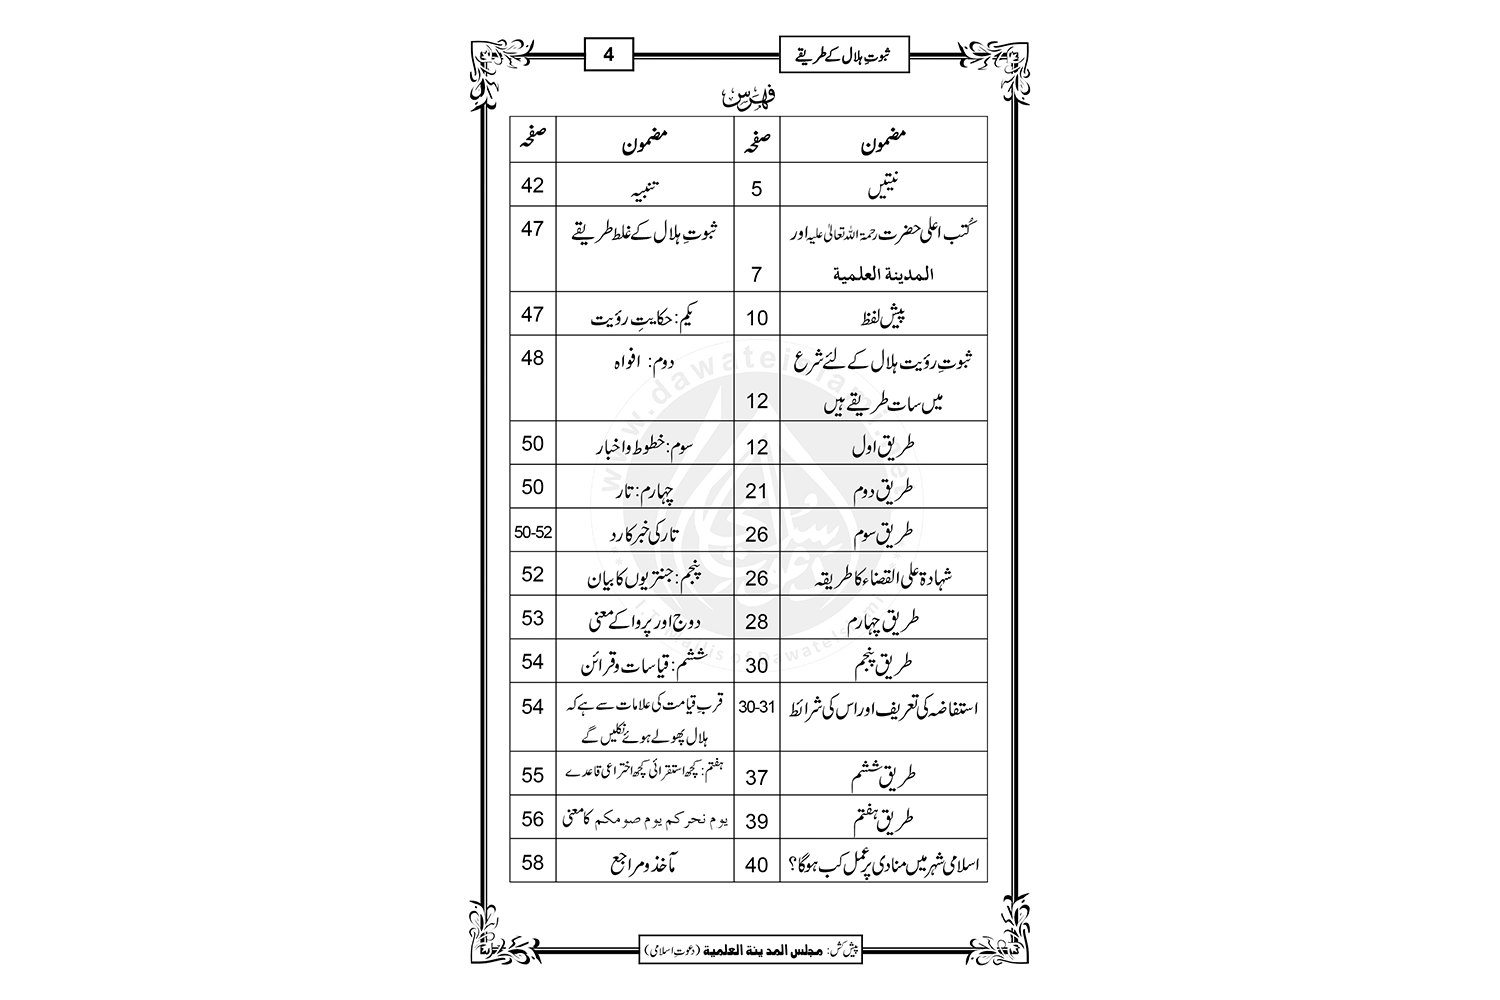 ثبوتِ ہلال کے طریقے
4
فہرس
مضمون صفحہ مضمون صفحہ
نیتیں 5 تنبیہ 42
کُتب اعلٰی حضرت رحمۃ اللہ تعالٰی علیہ اور ثبوتِ ہلال کے غلط طریقے 47
المدینۃ العلمیۃ 7
پیش لفظ 10 یکم: حکایتِ رؤیت 47
ثبوتِ رؤیت ہلال کے لئے شرع دوم: افواہ 48
میں سات طریقے ہیں 12
طریق اول 12 سوم: خطوط و اخبار 50
طریق دوم 21 چہارم: تار 50
طریق سوم 26 تار کی خبر کا رد 50-52
شہادۃ علی القضاء کا طریقہ 26 پنجم: جنتریوں کا بیان 52
طریق چہارم 28 دوج اور پروا کے معنی 53
طریق پنجم 30 ششم: قیاسات و قرائن 54
استفاضہ کی تعریف اور اس کی شرائط 30-31 قربِ قیامت کی علامات سے ہے کہ 54
ہلال پھولے ہوئے نکلیں گے
طریق ششم 37 ہفتم: کچھ استقرائی کچھ اختراعی قاعدے 55
طریق ہفتم 39 یوم نحرکم یوم صومکم کا معنی 56
اسلامی شہر میں منادی پر عمل کب ہوگا؟ 40 مآخذ و مراجع 58
پیش کش: مجلس المدینۃ العلمیۃ (دعوتِ اسلامی)
www.dawateislami.net
I.T Majlis of DawateIslami